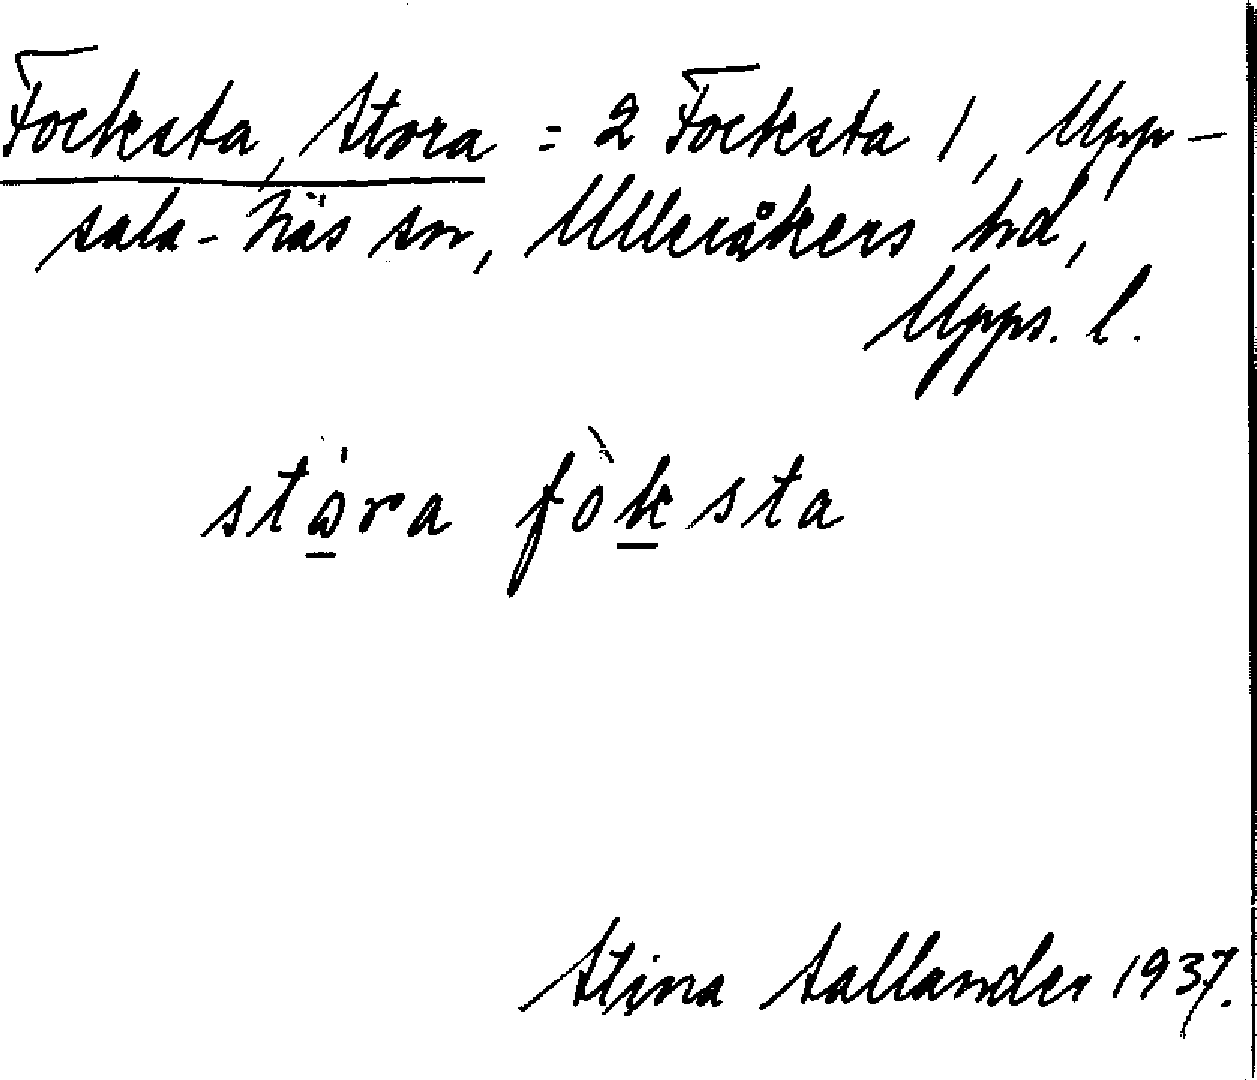 Focksta, Stora = 2 Focksta 1, Upp-
sala-Näs sn, Ulleråkers hd,
Upps. l.
sto̲̍ra fòk̲sta
Stina Sallander 1937.